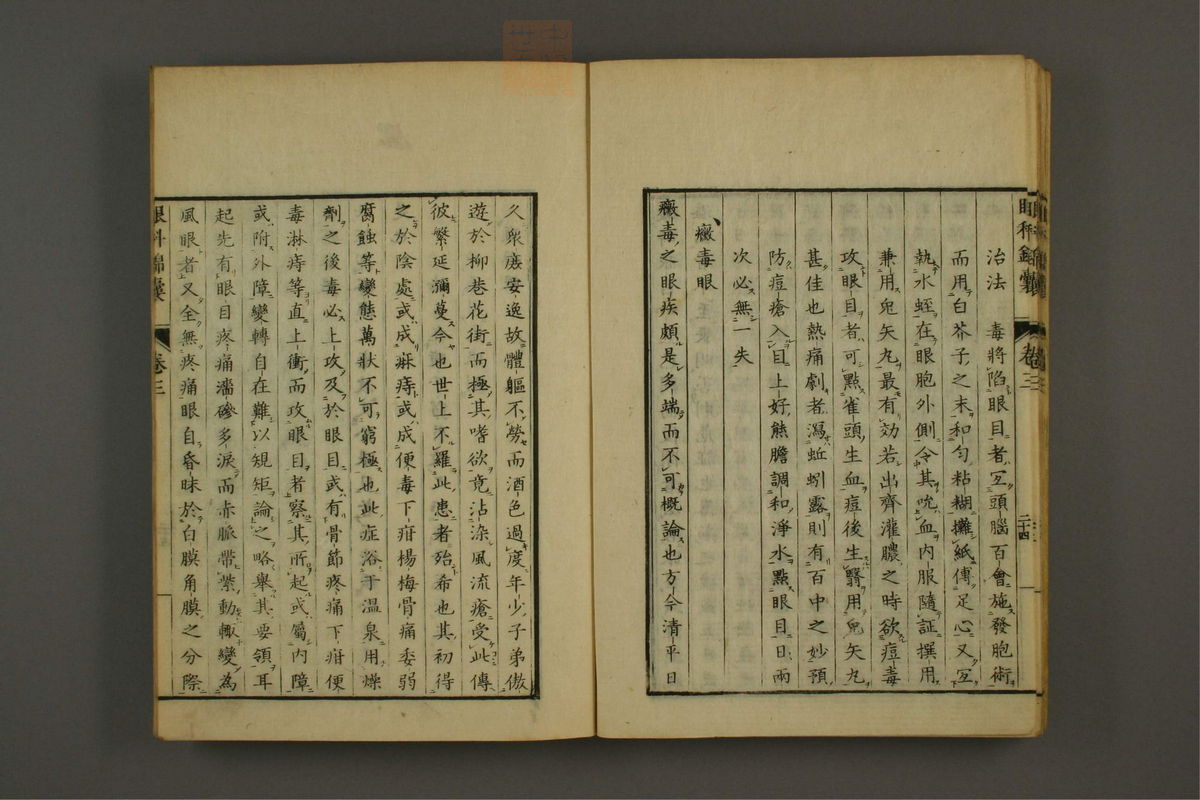 眼科錦囊 卷三 二十四
治法 毒將陷眼目者宜頭腦百會施發胞術
而用白芥子之末和勻粘糊攤紙傳足心又宜
執水蛭在眼胞外側令其吮血內服隨証撰用
兼用兜矢丸最有効若出齊灌膿之時欲痘毒
攻眼目者可點雀頭生血痘後生翳用兜矢丸
甚佳也熱痛劇者瀉蚯蚓露則有百中之妙預
防痘瘡入目上好熊膽調和淨水點眼目日兩
次必無一失
黴毒眼
黴毒之眼疾頗是多端而不可概論也方今清平日
久衆庶安逸故體軀不勞而酒色過度年少子弟傲
遊於柳巷花街而極其嗜欲竟沾染風流瘡受此傳
彼繁延瀰蔓今也世上不羅此患者殆希也其初得
之於陰處或成痳痔或成便毒下疳楊梅骨痛委弱
腐蝕等變態萬狀不可窮極也此症浴于温泉用燥
劑之後毒必上攻及於眼目或有骨節疼痛下疳便
毒淋痔等直上衝而攻眼目者察其所起或屬內障
或附外障變轉自在難以規矩論之略舉其要領耳
起先有眼目疼痛濇磣多淚而赤脈帶紫動輙變為
風眼者又全無疼痛眼自昏昧於白膜角膜之分際
眼科錦囊 卷三